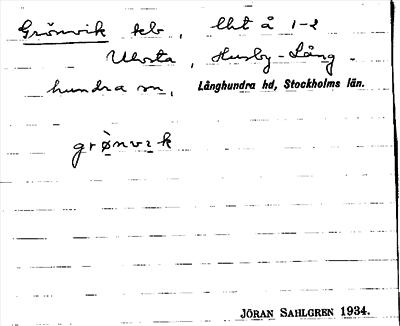 Grönvik tlb, lht å 1-2
Ulvsta, Husby-Lång-
hundra sn, Långhundra hd, Stockholms län.
grò̱nvɪk
JÖRAN SAHLGREN 1934.